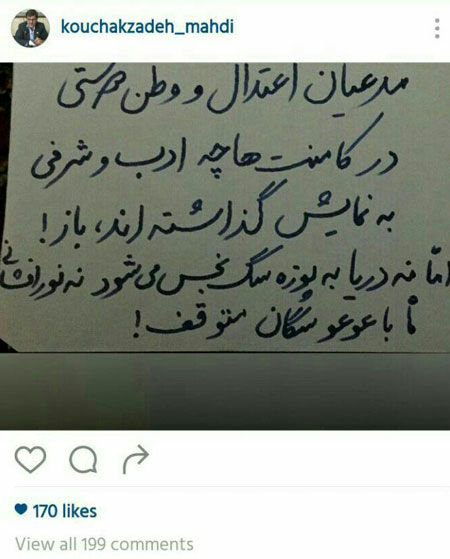 kouchakzadeh_mahdi
مدعیان اعتدال و وطن پرستی
در کامنت ها چه ادب و شرفی
به نمایش گذاشته اند، باز!
امّا نه دریا به پوزه سگ نجس می شود نه نورافشانی
ما با عوعو سگان متوقف!
170 likes
View all 199 comments